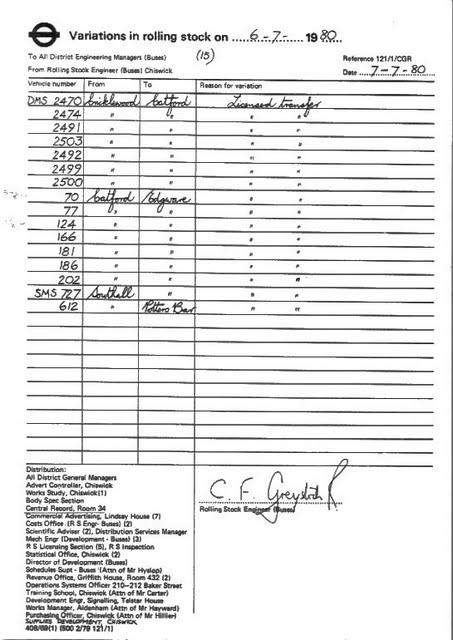 Variations in rolling stock on 6-7- 1980
To All District Engineering Managers (Buses) (15) Reference 121/1/CGR
From Rolling Stock Engineer (Buses) Chiswick Date 7-7-80
Vehicle number From To Reason for variation
DMS 2470 Cricklewood Catford Licensed transfer
2474 " " " "
2491 " " " "
2503 " " " "
2492 " " " "
2499 " " " "
2500 " " " "
70 Catford Edgware " "
77 " " " "
124 " " " "
166 " " " "
181 " " " "
186 " " " "
202 " " " "
SMS 727 Southall " " "
612 " Potters Bar " "
Distribution:
All District General Managers
Advert Controller, Chiswick
Works Study, Chiswick(1)
Body Spec Section
Central Record, Room 34
Commercial Advertising, Lindsay House (7)
Costs Office (R S Engr- Buses) (2)
Scientific Adviser (2), Distribution Services Manager
Mech Engr (Development - Buses) (3)
R S Licensing Section (5), R S Inspection
Statistical Office, Chiswick (2)
Director of Development (Buses)
Schedules Supt - Buses (Attn of Mr Hyslop)
Revenue Office, Griffith House, Room 432 (2)
Operations Systems Officer 210–212 Baker Street
Training School, Chiswick (Attn of Mr Carter)
Development Engr, Signalling, Telstar House
Works Manager, Aldenham (Attn of Mr Hayward)
Purchasing Officer, Chiswick (Attn of Mr Hillier)
SUPPLIES DEVELOPMENT, CHISWICK
408/69(1) (500 2/79 121/1)
C. F.
Rolling Stock Engineer (Buses)